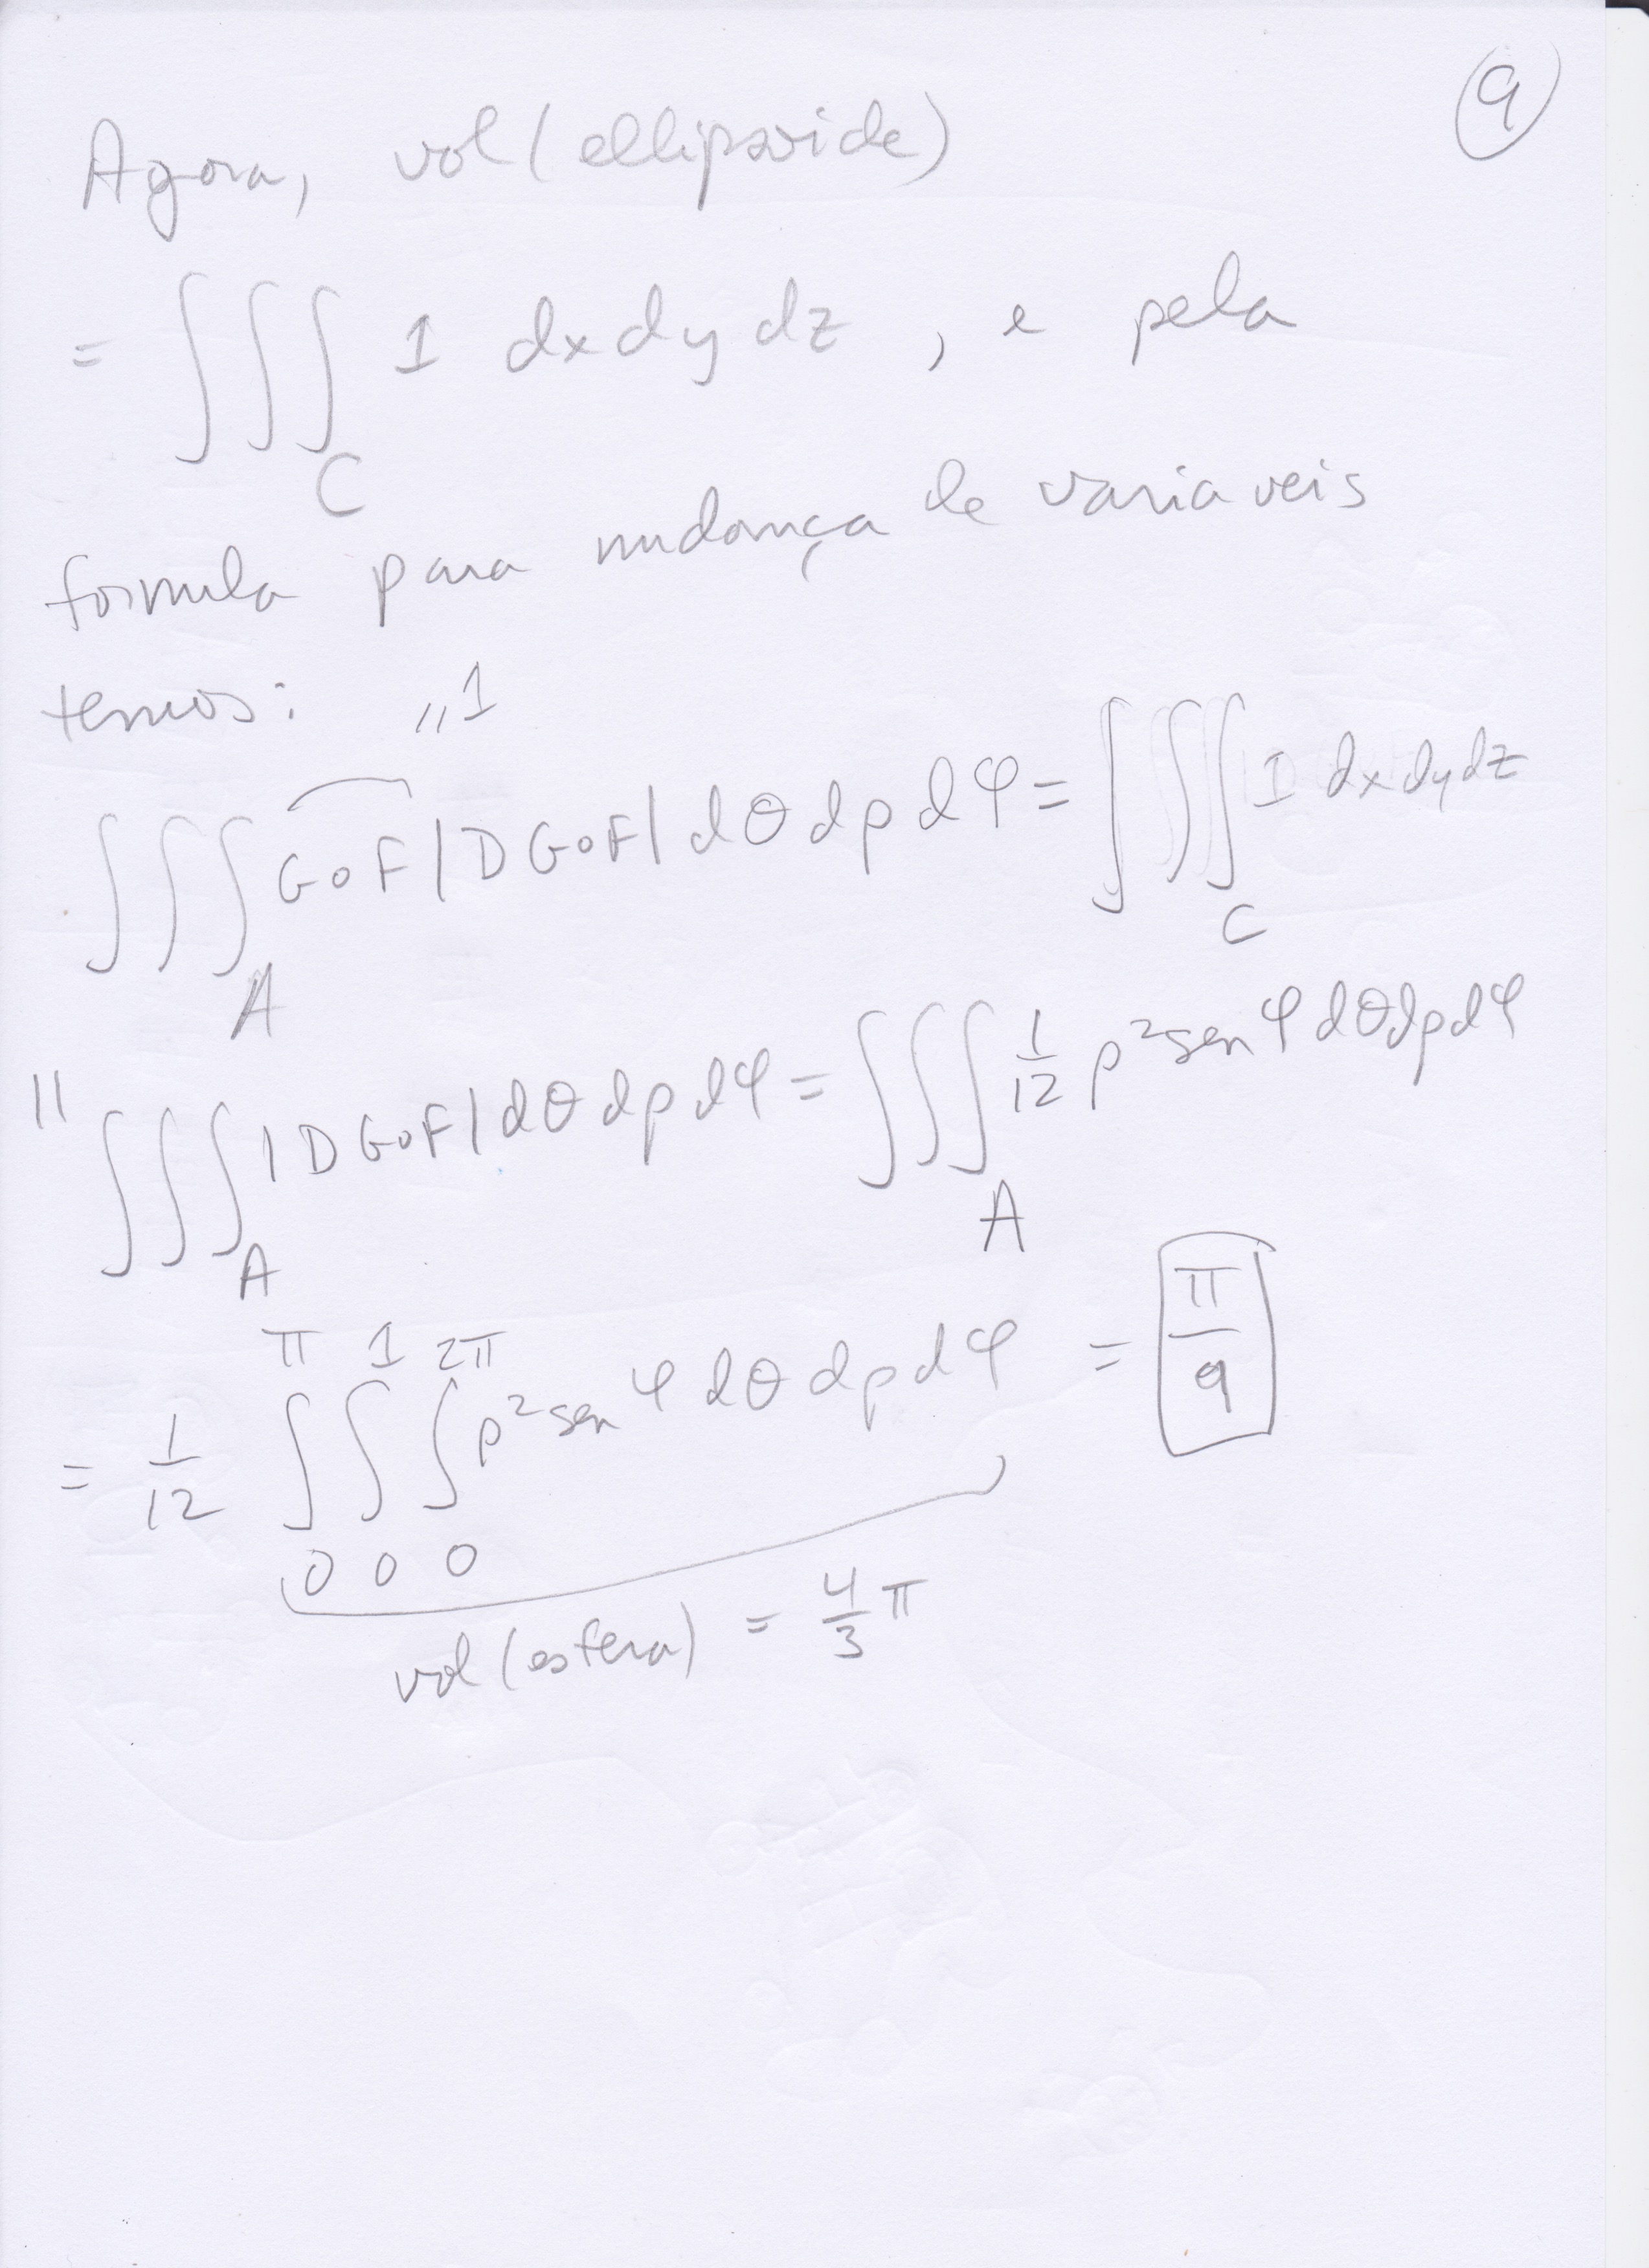 9
Agora, vol(ellipsoide)
= ∫∫∫_C 1 dx dy dz , e pela
formula para mudança de variaveis
temos: " 1
∫∫∫_A G∘F |D G∘F| dθ dρ dφ = ∫∫∫_C 1 dx dy dz
|| ∫∫∫_A |D G∘F| dθ dρ dφ = ∫∫∫_A 1/12 ρ² sen φ dθ dρ dφ
= 1/12 ∫_0^π ∫_0^1 ∫_0^2π ρ² sen φ dθ dρ dφ = π/9
vol(esfera) = 4/3 π